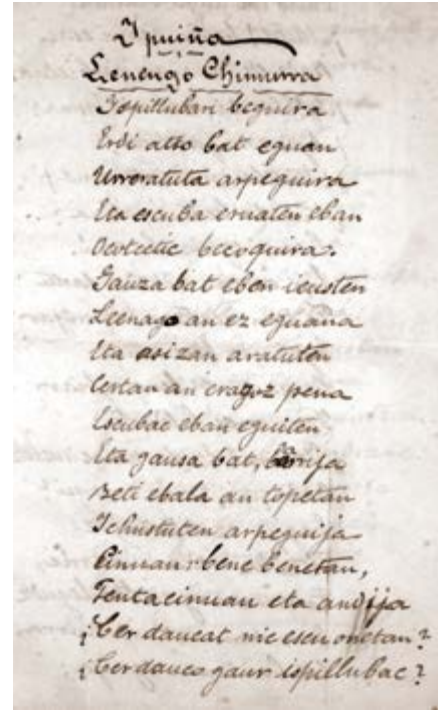 Ipuiña
Lenengo Chimurra
Ispillubari beguira
Erdi atso bat eguan
Urreratuta arpeguira
Eta escuba eruaten eban
becoquira.
Gauza bat eben icusten
Leenago an ez eguana
Eta asi zan aratuten
Certan an eragoz pena
Escubac eban eguiten
Eta gausa bat, barrija
Beti ebala an topetan
Ichustuten arpeguija
Cinuan bene benetan,
Tentacinuan eta andija
¿Cer daucat nic escu onetan?
¿Cer dauco gaur ispillubac?